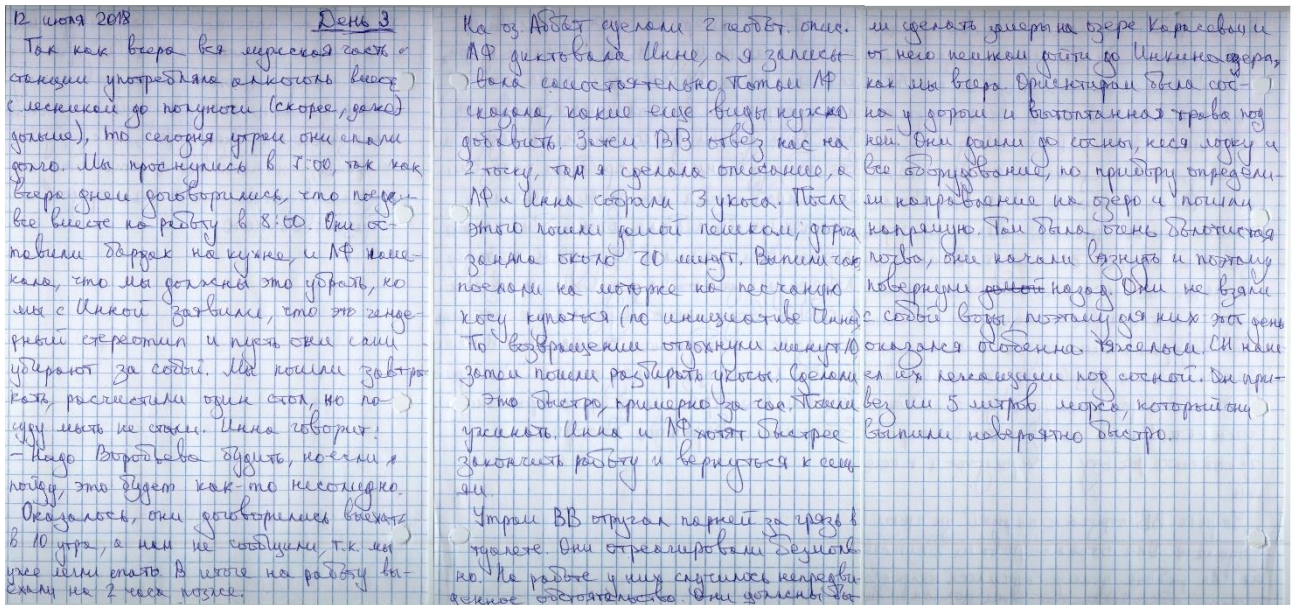 12 июля 2018 День 3
Так как вчера вся мужская часть
станции употребляла алкоголь вместе
с лесником до полуночи (скорее, даже
дольше), то сегодня утром они спали
долго. Мы проснулись в 7:00, так как
вчера днем договорились, что поедем
все вместе на работу в 8:00. Они ос-
тавили бардак на кухне, и ЛФ наме-
кала, что мы должны это убрать, но
мы с Инной заявили, что это генде-
рный стереотип и пусть они сами
убирают за собой. Мы пошли завтра-
кать, расчистили один стол, но по-
суду мыть не стали. Инна говорит:
- Надо Воробьева будить, но если я
пойду, это будет как-то несолидно.
Оказалось, они договорились выехать
в 10 утра, а нам не сообщили, т.к. мы
уже легли спать. В итоге на работу вы-
ехали на 2 часа позже.
На оз. сделали 2 опис.
ЛФ диктовала Инне, а я записы-
вала самостоятельно. Потом ЛФ
сказала, какие еще виды нужно
добавить. Затем ВВ отвез нас на
2 точку, там я сделала описание, а
ЛФ и Инна собрали 3 укоса. После
этого пошли домой пешком, дорога
заняла около 20 минут. Выпили чай,
поехали на моторке на песчаную
косу купаться (по инициативе Инны).
По возвращении отдохнули минут 10
затем пошли разбирать укосы. Сделали
это быстро, примерно за час. Пошли
ужинать. Инна и ЛФ хотят быстрее
закончить работу и вернуться к семь-
ям.
Утром ВВ отругал парней за грязь в
туалете. Они отреагировали безмолв-
но. На работе у них случилось непредви-
денное обстоятельство. Они должны бы-
ли сделать замеры на озере Карасевом и
от него пешком дойти до Инкина озера,
как мы вчера. Ориентиром была сос-
на у дороги и вытоптанная трава под
ней. Они дошли до сосны, неся лодку и
все оборудование, по прибору определи-
ли направление на озеро и пошли
напрямую. Там была очень болотистая
почва, они начали вязнуть и поэтому
повернули домой назад. Они не взяли
с собой воды, поэтому для них этот день
оказался особенно тяжелым. СН наш-
ел их лежащими под сосной. Он при-
вез им 5 литров морса, который они
выпили невероятно быстро.